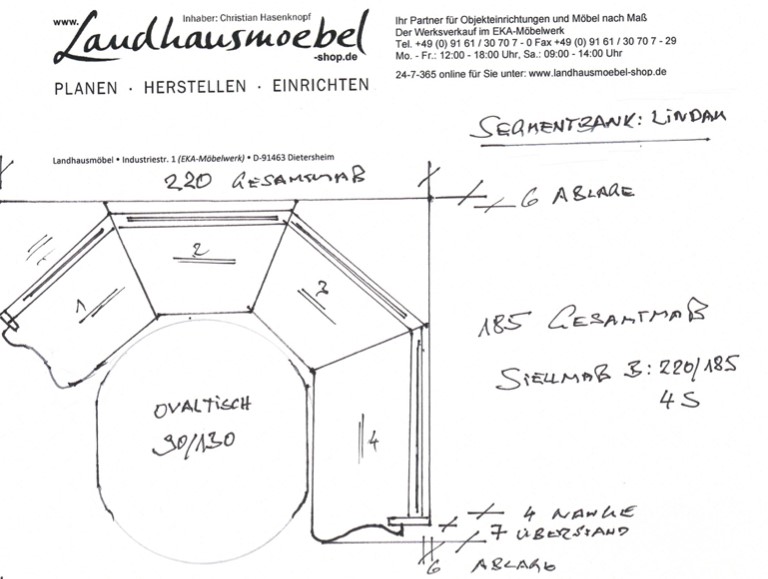 www.
Inhaber: Christian Hasenknopf
Landhausmoebel
-shop.de
PLANEN · HERSTELLEN · EINRICHTEN
Ihr Partner für Objekteinrichtungen und Möbel nach Maß
Der Werksverkauf im EKA-Möbelwerk
Tel. +49 (0) 91 61 / 30 70 7 - 0 Fax +49 (0) 91 61 / 30 70 7 - 29
Mo. - Fr.: 12:00 - 18:00 Uhr, Sa.: 09:00 - 14:00 Uhr
24-7-365 online für Sie unter: www.landhausmoebel-shop.de
SEGMENTBANK: LINDAU
Landhausmöbel • Industriestr. 1 (EKA-Möbelwerk) • D-91463 Dietersheim
220 GESAMTMAß
6 ABLAGE
2
1
3
185 GESAMTMAß
STELLMAß B: 220/185
4 S
OVALTISCH
90/130
4
4 WANGE
7 ÜBERSTAND
6 ABLAGE